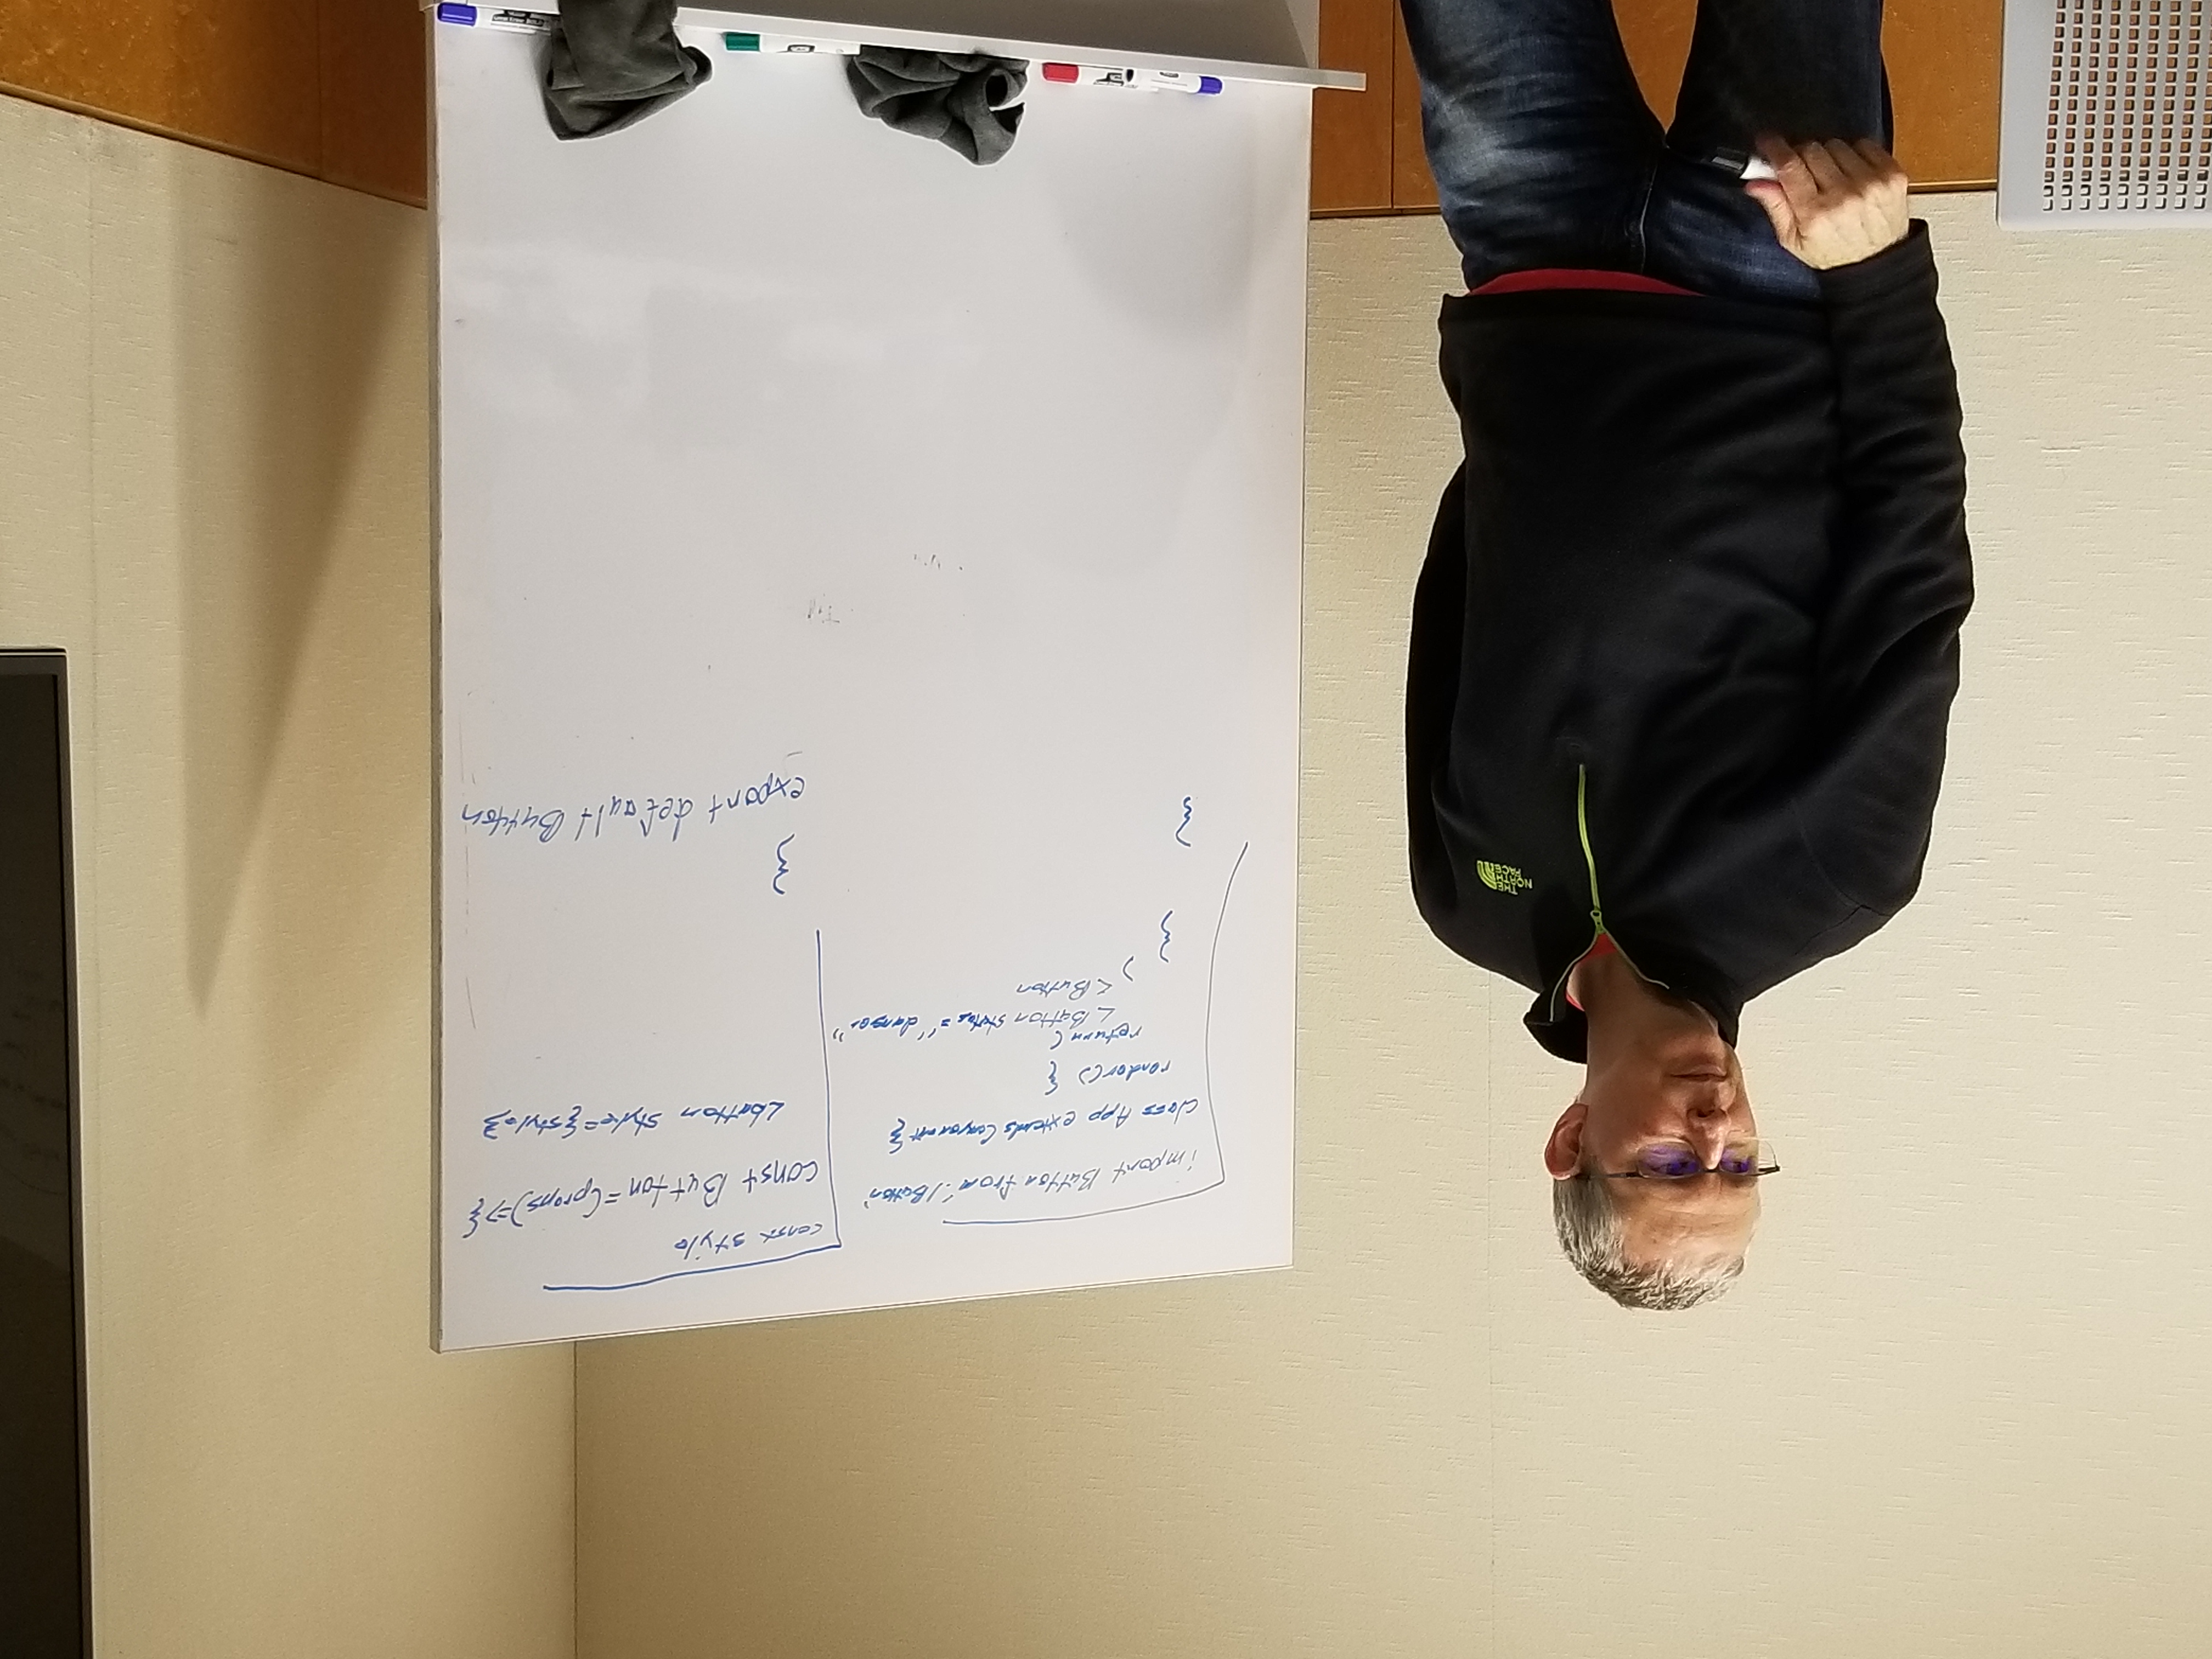 THE
NORTH
FACE
import Button from './Button'
class App extends Component {
render() {
return (
<Button status="danger"
<Button
)
}
}
const style
const Button = (props) => {
<button style={style}
}
export default Button